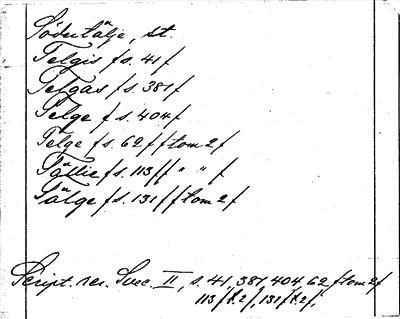 Södertälje, st.
Telgis /s. 41/
Telgas /s. 381/
Telge /s. 404/
Telge /s. 62/ /tom 2/
Tällie /s. 113/ / " " /
Tälge /s. 131/ /tom 2/
Script. rer. Svec. II, s. 41, 381, 404, 62 /tom 2/
113/t. 2/, 131/t. 2/.